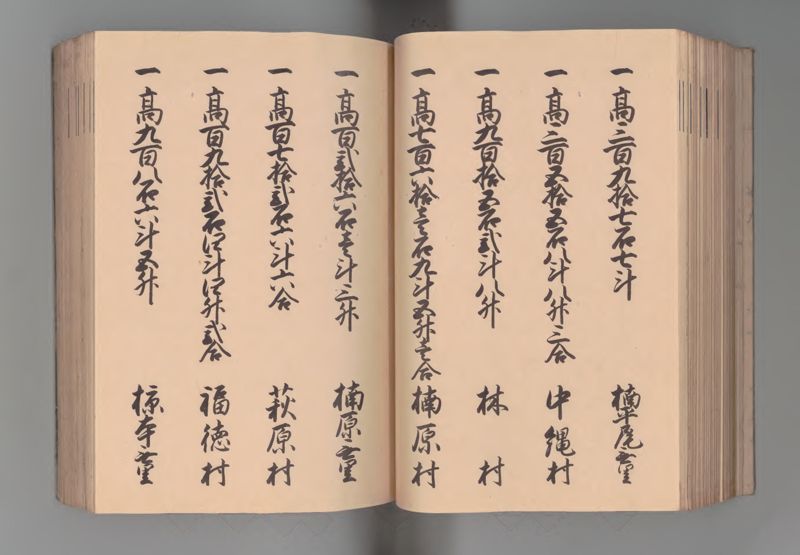 一高三百九拾七石七斗 楠平尾
一高三百五拾五石八斗八升三合 中縄村
一高九百拾五石弐斗八升 林村
一高七百六拾壱石九斗五升壱合 楠原村
一高百弐拾六石壱斗三升 楠原
一高百七拾弐石六斗六合 萩原村
一高百九拾弐石四斗四升弐合 福徳村
一高九百八石六斗五升 椋本